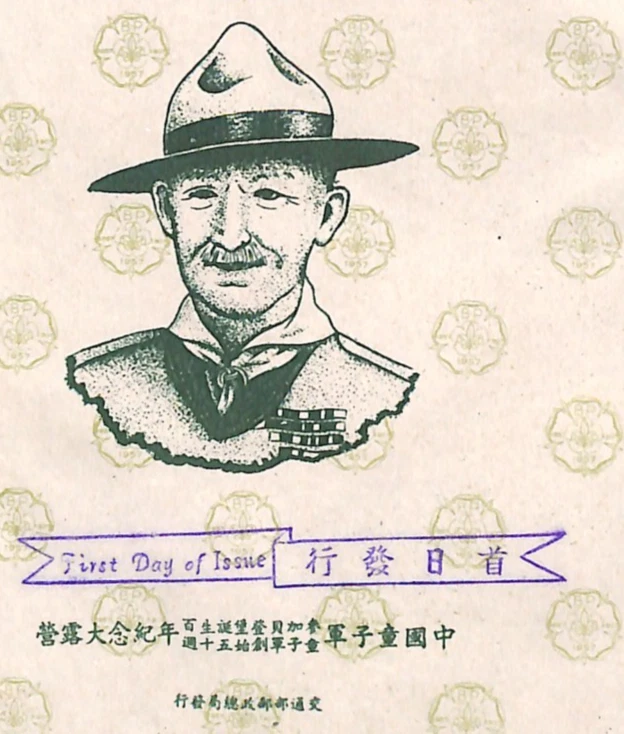 First Day of Issue 首日發行
中國童子軍參加貝登堡誕生百童子軍創始五十週年紀念大露營
交通部郵政總局發行